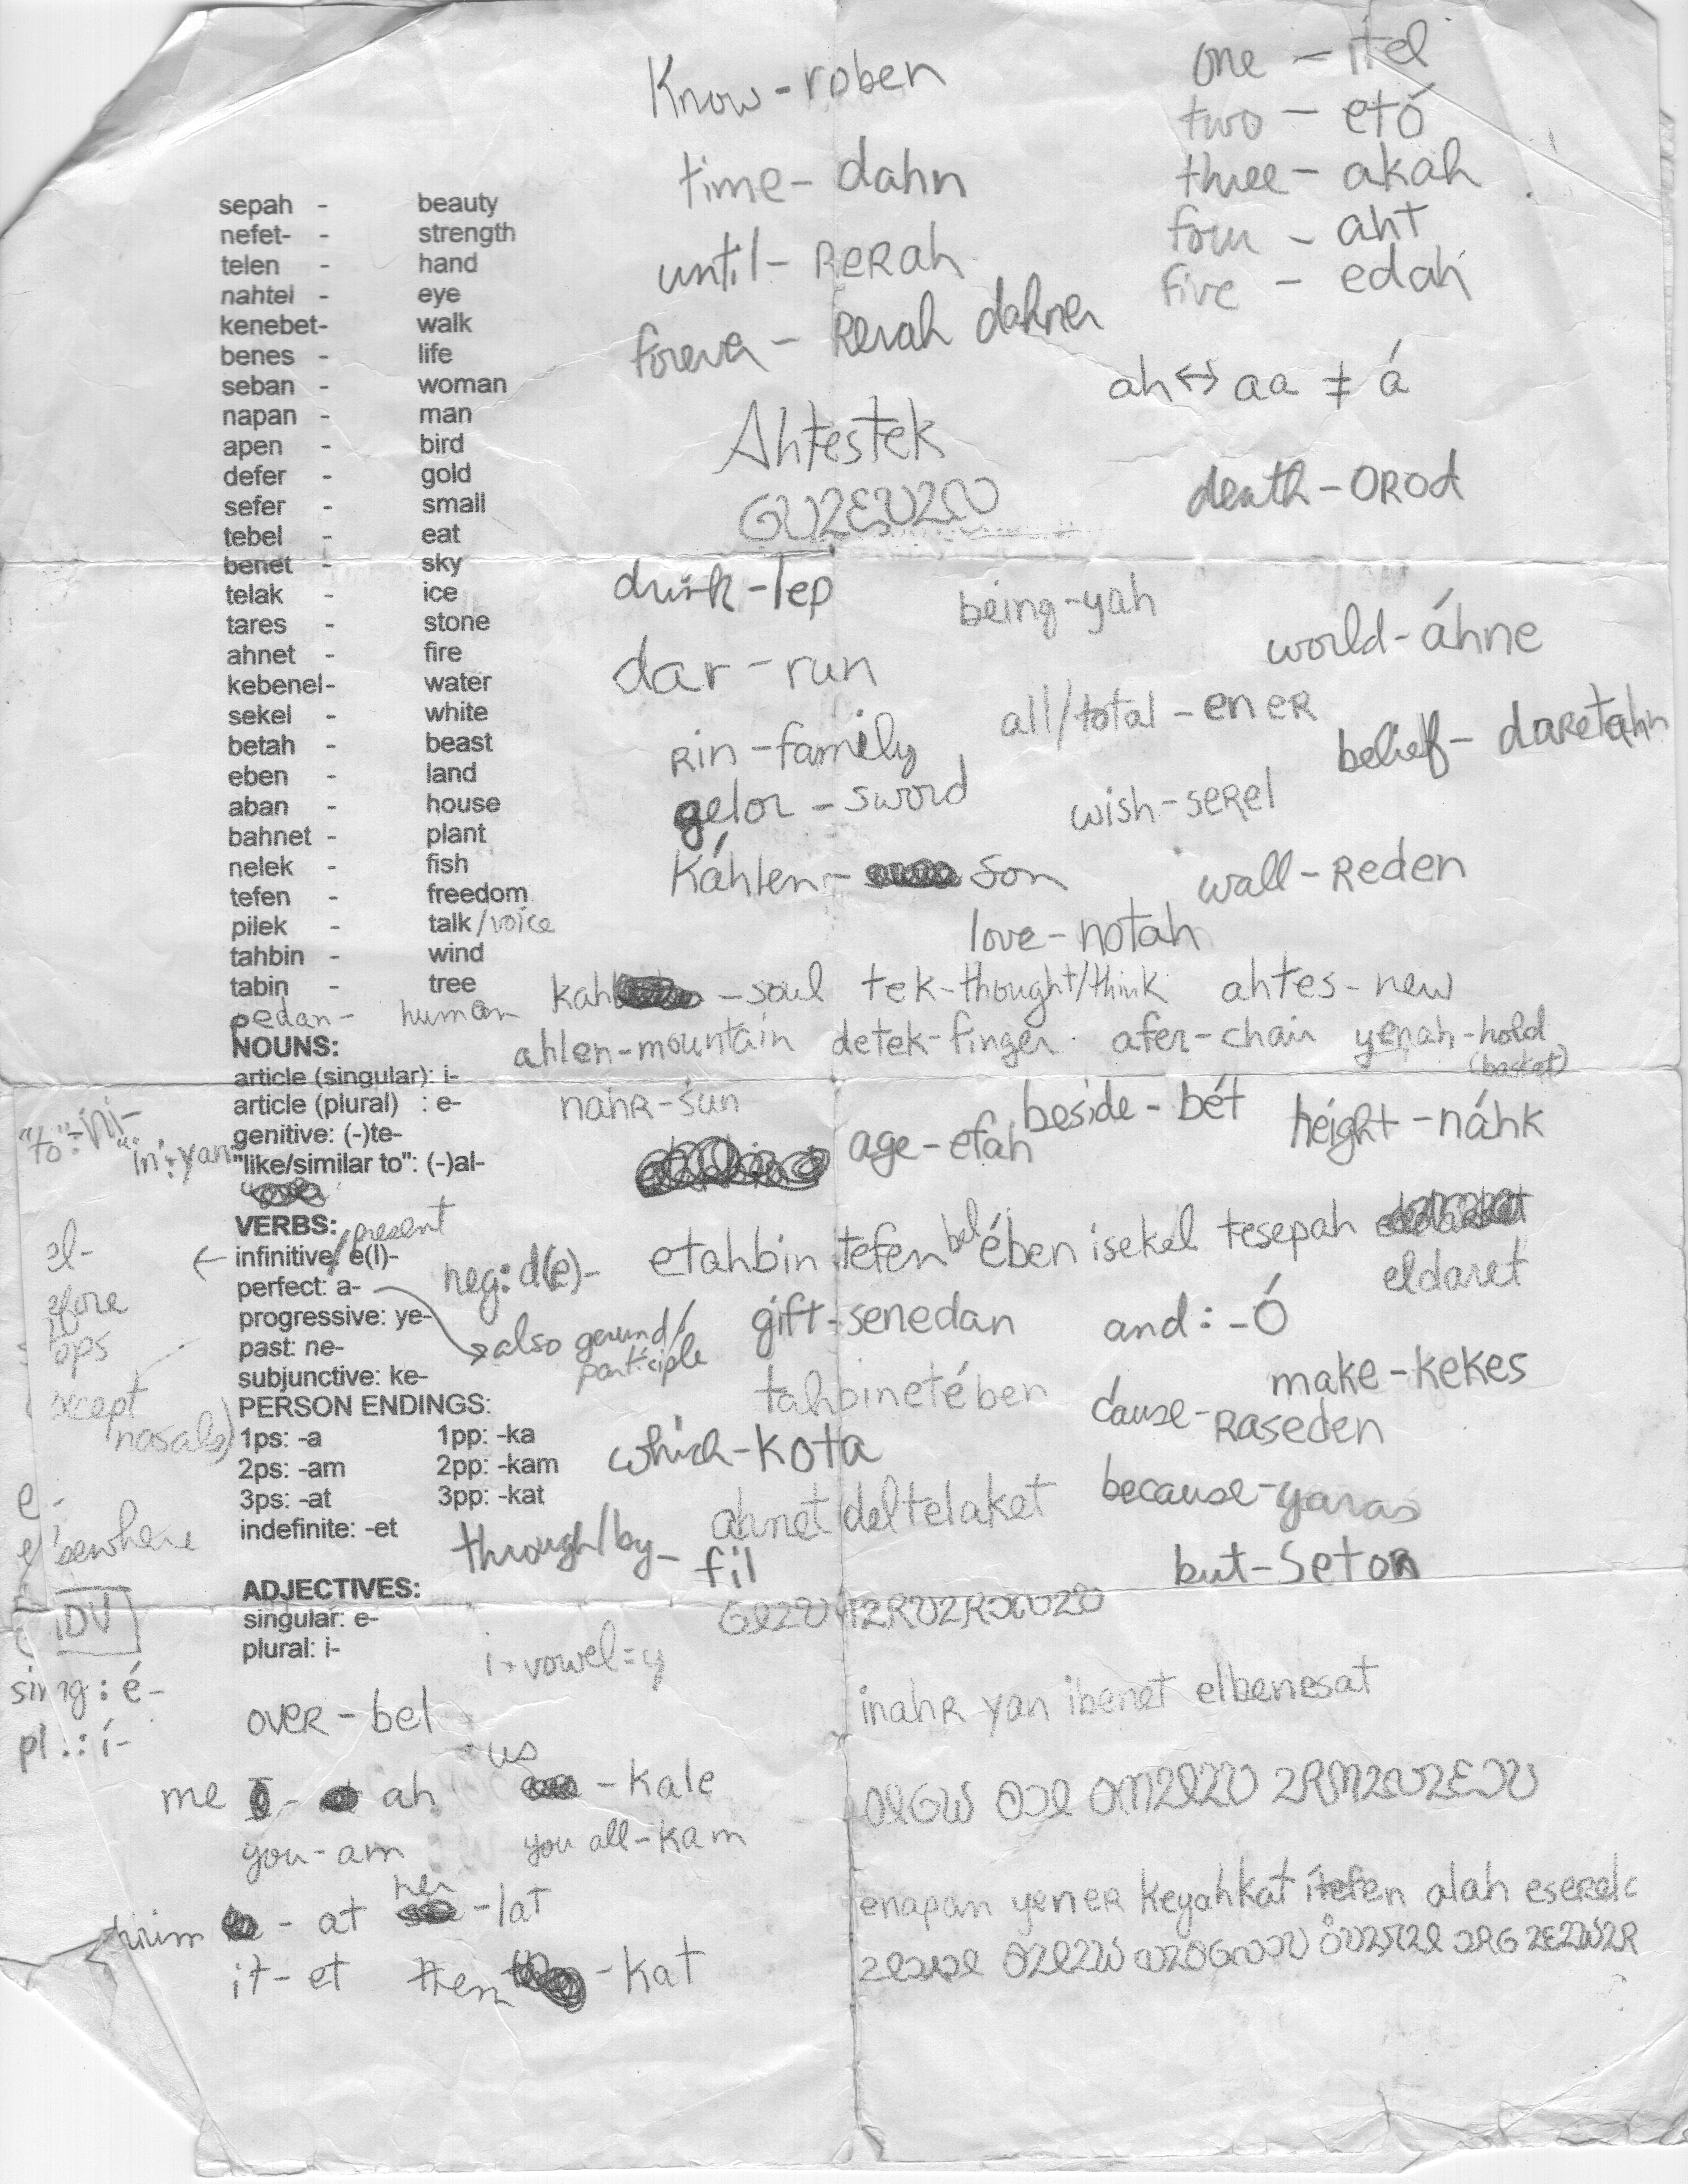 Know - roben
one - itel
two - etó
time - dahn
three - akah
sepah - beauty
four - aht
nefet- - strength
until - RERah
telen - hand
five - edah
nahtel - eye
forever - Rerah dahner
kenebet- walk
benes - life
ah ↔ aa ≠ á
seban - woman
napan - man
Ahtestek
apen - bird
defer - gold
death - OROd
sefer - small
tebel - eat
benet - sky
drink - lep
being - yah
telak - ice
tares - stone
world - áhne
ahnet - fire
dar - run
kebenel- water
all/total - eneR
sekel - white
belief - daRetahn
betah - beast
Rin - family
eben - land
gelor - sword
wish - seRel
aban - house
bahnet - plant
Káhlen - son
wall - Reden
nelek - fish
tefen - freedom
love - notah
pilek - talk/voice
tahbin - wind
tabin - tree
kah - soul tek - thought/think ahtes - new
pedan - human
NOUNS:
ahlen - mountain detek - finger afer - chair yenah - hold
(basket)
article (singular): i-
article (plural) : e-
nahR - sun
beside - bét
height - náhk
"to": ini-
genitive: (-)te-
age - efah
"in": yan
"like/similar to": (-)al-
VERBS:
/present
etahbin tefen bel ében isekel tesepah
eldaret
infinitive: e(l)-
neg: d(e)-
perfect: a-
progressive: ye-
also gerund/
participle
gift - senedan
and: -Ó
past: ne-
subjunctive: ke-
tahbinetében
make - kekes
cause - Raseden
PERSON ENDINGS:
except
nasals)
1ps: -a 1pp: -ka
which - kota
2ps: -am 2pp: -kam
3ps: -at 3pp: -kat
because - yaras
e -
elsewhere
indefinite: -et
ahnet deltelaket
through/by - fil
but - Seton
ADJECTIVES:
singular: e-
plural: i-
i + vowel = y
sing: é-
pl.: í-
inahR yan ibenet elbenesat
oveR - bel
me - ah
us - kale
you - am
you all - kam
him - at her - lat
enapan yeneR keyahkat itefen alah
it - et them - kat